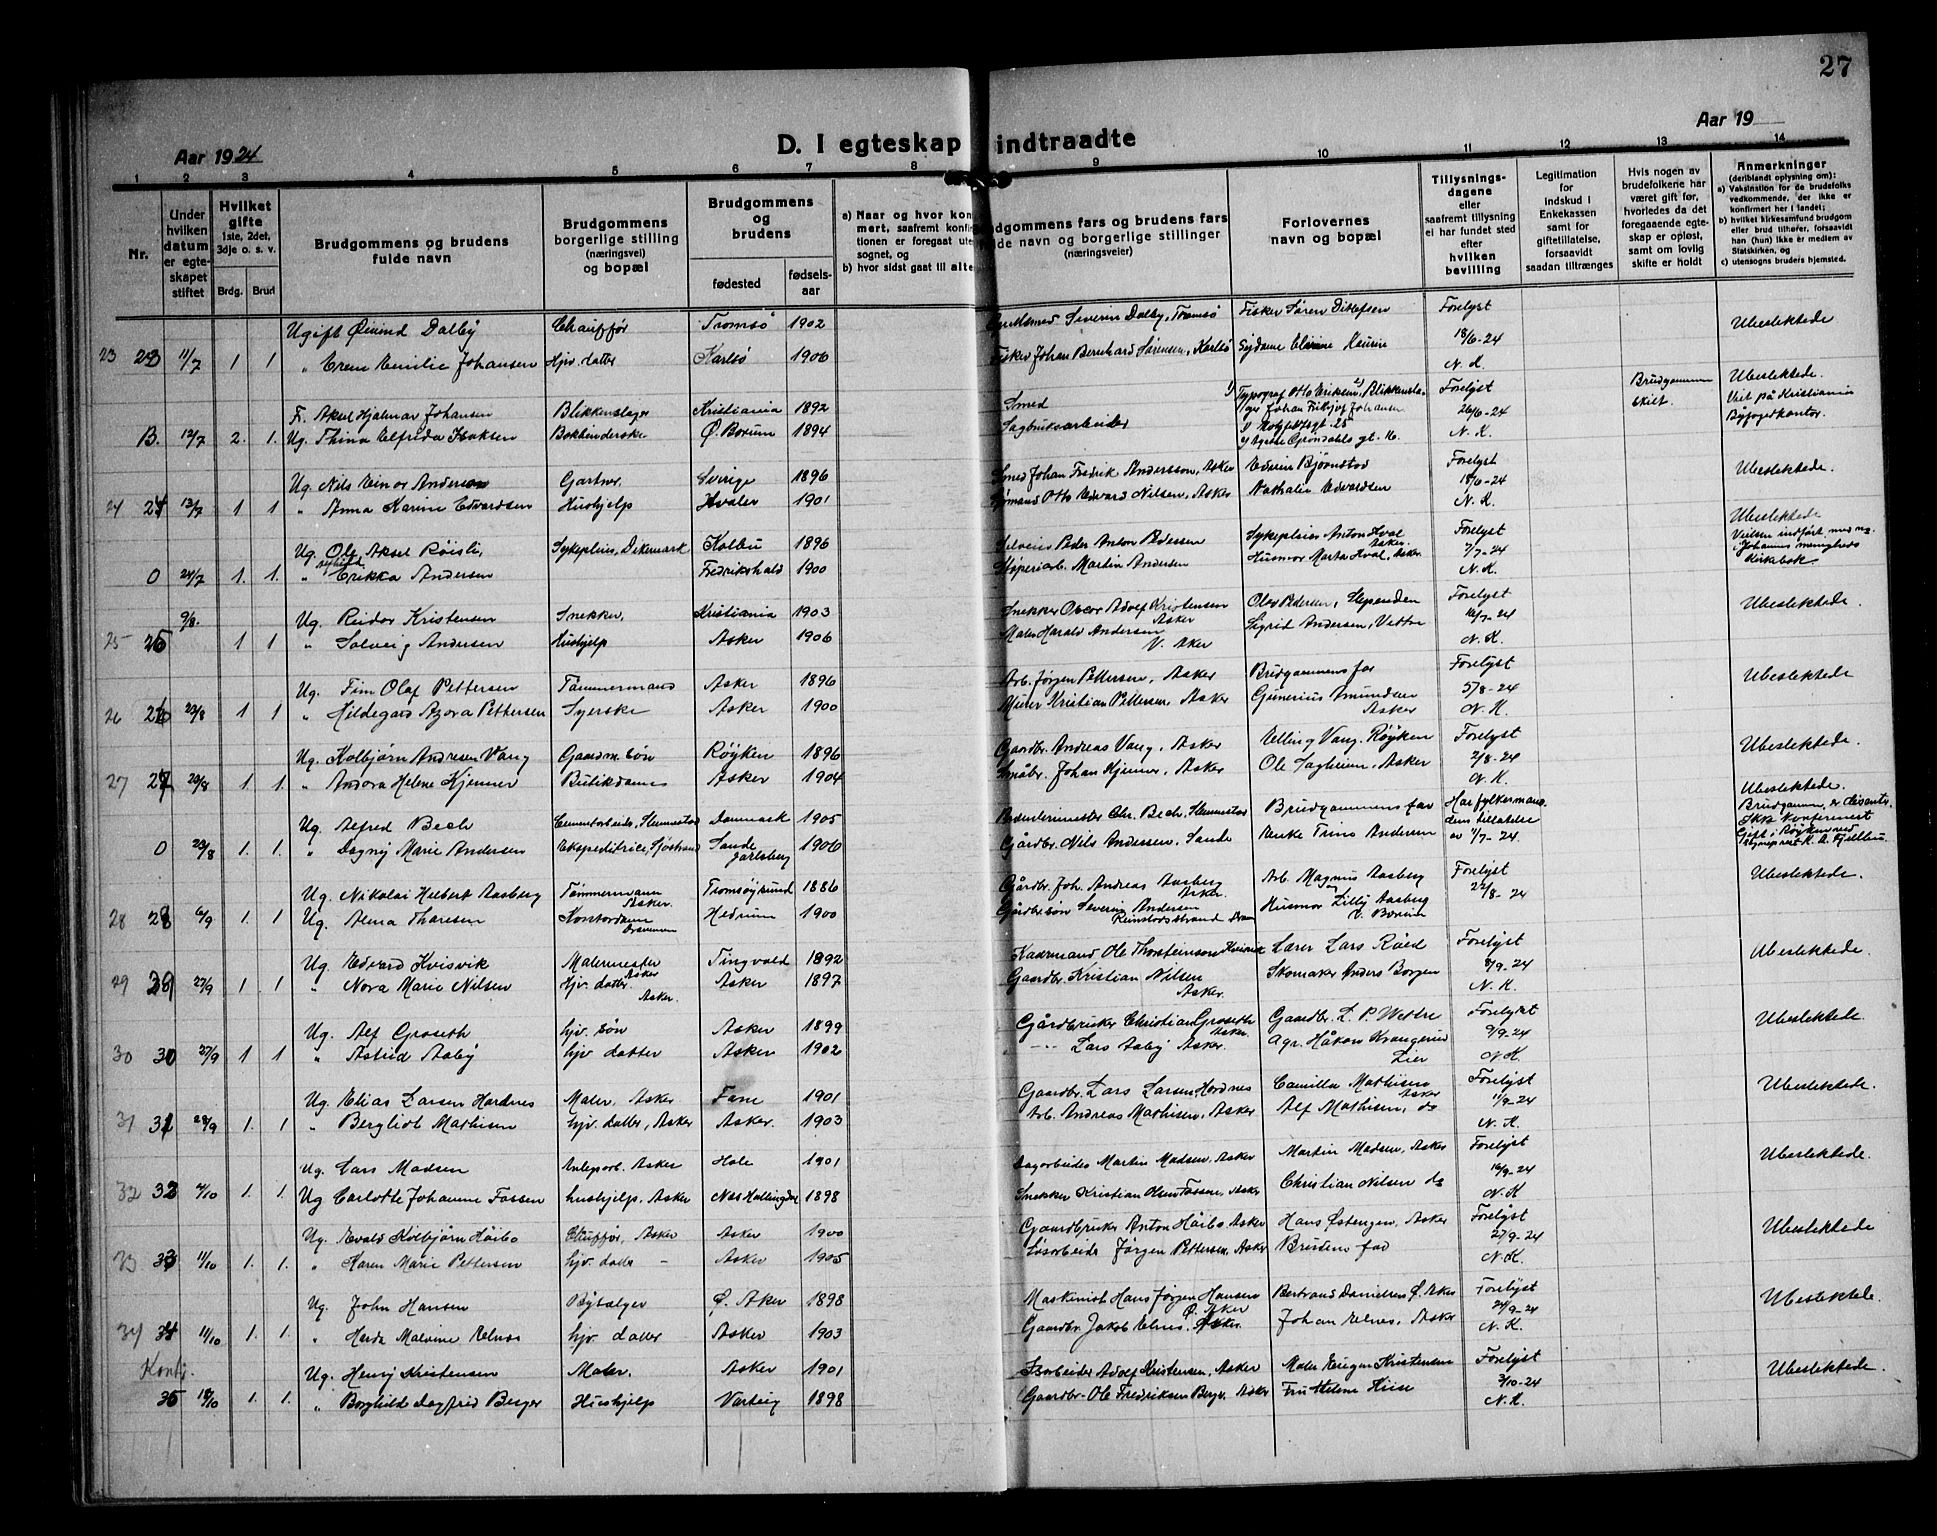 27
Aar 1924
D. I egteskap indtraadte
Aar 19
1 2 3 4 5 6 7 8 9 10 11 12 13 14
Nr.
Under hvilken datum er egteskapet stiftet
Hvilket gifte 1ste, 2det, 3dje o. s. v.
Brdg. Brud
Brudgommens og brudens fulde navn
Brudgommens borgerlige stilling (næringsvei) og bopæl
Brudgommens og brudens
fødested
fødselsaar
a) Naar og hvor kon
mert, saafremt konfir
tionen er foregaat ute
sognet, og
b) hvor sidst gaat til alte
dgommens fars og brudens fars
fulde navn og borgerlige stillinger
(næringsveier)
Forlovernes navn og bopæl
Tillysningsdagene eller saafremt tillysning ei har fundet sted efter hvilken bevilling
Legitimation for indskud i Enkekassen samt for giftetillatelse, forsaavidt saadan tiltrænges
Hvis nogen av brudefolkene har været gift før, hvorledes da det foregaaende egteskap er opløst, samt om lovlig skifte er holdt
Anmerkninger
(deriblandt oplysning om):
a) Vaksination for de brudefolks vedkommende, der ikke er konfirmert her i landet;
b) hvilket kirkesamfund brudgom eller brud tilhører, forsaavidt han (hun) ikke er medlem av Statskirken, og
c) utensogns bruders hjemsted.
Ugift Øivind Dalby Chauffør Tromsø 1902 Severin Dalby, Tromsø Fisker Søren Ditlefsen Forelyst Ubeslektede
23 23 11/7 1 1 " Emilie Johansen Hjv. datter Karlsø 1906 Fisker Johan Bernhard Sørensen, Karlsø 18/6-24
N. K.
Fr. Aksel Hjalmar Johansen Blikkenslager Kristiania 1892 Smed 1) Typograf Otto Eriksen, 2) Blikkensla- Forelyst Brudgommen skilt. Ubeslektede.
ger Johan Fritjof Johansen 26/6-24 Viet på Kristiania
B. 12/7 2. 1. Ug. Thina Elfrida Isaksen Bokbinderske Ø. Bærum 1894 Sagbruksarbeider N. K. Byfogedkontor.
2) Agate Grøndahls gt. 16.
Ug. Nils Einar Anderson Gartner Sverige 1896 Smed Johan Fredrik Andersson, Asker Edvin Bjørnstad Forelyst Ubeslektede.
24 24 13/7 1 1 " Anna Karine Edvardsen Hushjelp Hvaler 1901 Sømand Otto Edvard Nilsen, Asker Nathalie Edvardsen 18/6-24
N. K.
Ug. Ole Aksel Røisli, Sykepleier, Dikemark Kolbu 1896 Selveier Peder Anton Pedersen Sykepleier Anton Hval Asker. Forelyst Ubeslektede
0 24/7 1. 1. " Erikka Andersen Fredrikshald 1900 Støperiarb. Martin Andersen Husmor Marta Hval, Asker. 7/7-24 Vielsen indført med no. i Johannes menigheds Kirkebok
N. K.
9/8. Ug. Reidar Kristensen Snekker, Kristiania 1903 Snekker Oscar Adolf Kristensen Asker Olav Pedersen, Slependen Forelyst Ubeslektede.
25 25 1 1 " Solveig Andersen Hushjelp Asker 1906 Maler Harald Andersen V. Aker Sigrid Andersen, Vettre 16/7-24
N. K.
Ug. Finn Olaf Pettersen Tømmermand Asker 1896 Arb. Jørgen Pettersen, Asker Brudgommens far Forelyst Ubeslektede
26 26 23/8 1 1 " Hildegard Azora Pettersen Syerske Asker 1900 Murer Kristian Pettersen, Asker Gunerius Amundsen Asker 5/8-24
N. K.
Ug. Kolbjørn Andresen Vang Gaardm. søn Røyken 1896 Gaardbr. Andreas Vang, Asker Elling Vang, Røyken Forelyst Ubeslektede.
27 27 23/8 1. 1. " Andora Helene Kjenner Butikdame Asker 1904 Småbr. Johan Kjenner, Asker Ole Sagheim, Asker 2/8-24
N. K.
Ug. Alfred Bech Cementarbeider, Slemmestad Danmark 1905 Brænderimester Chr. Bech, Slemmestad Brudgommens far Har fylkesmandens tillatelse av 11/7-24. Ubeslektede.
0 23/8 1. 1. " Dagny Marie Andersen Ekspeditrice, Sjøstrand Sande Jarlsberg 1906 Gårdbr. Nils Andersen, Sande Enke Trine Andersen Brudgommen er dissenter. Ikke Konfirmert Gift i Røyken ved sogneprest K. A. Fjellbu.
Ug. Nikolai Hilbert Aasberg Tømmermann Asker. Tromsøysund 1886 Gårdbr. Joh. Andreas Aasberg Asker. Arb. Magnus Aasberg Forelyst Ubeslektede.
28 28 6/9 1. 1 Ug. Alma Thoresen Kontordame Drammen Hedrum 1900 Gårdbr. søn Severin Andersen Husmor Lilly Aasberg V. Bærum 22/8-24
Ug. Edvard Kvisvik Malermester Asker Tingvold 1892 Kaarmand Ole Thorsteinson Kvisvik Lærer Lars Røed Forelyst Ubeslektede.
29 29 27/9 1. 1 " Nora Marie Nilsen Hjv. datter. Asker. Asker 1897 Gaardbr. Kristian Nilsen Asker. Skomaker Anders Borgen 8/9-24
N. K.
Ug. Alf Groseth hjv. søn Asker 1899 Gårdbruker Christian Groseth Asker. Gaardbr. L. P. Wettre Forelyst Ubeslektede.
30 30 27/9 1 1 " Astrid Aaby hjv. datter Asker 1902 Lars Aaby Asker. Agr. Håkon Lier 9/9-24
N. K.
Ug. Elias Larsen Hordnes Maler. Asker Fane 1901 Gaardbr. Lars Larsen Hordnes Camilla Mathisen Asker Forelyst Ubeslektede.
31 31 28/9 1. 1 " Bergliot Mathisen hjv. datter, Asker Asker. 1903 Arb. Andreas Mathisen, Asker Alf Mathisen, do 11/9-24
N. K.
Ug. Lars Madsen Anlegsarb. Asker Hole 1901 Dagarbeider Martin Madsen, Asker Martin Madsen, Asker Forelyst Ubeslektede.
32 32 4/10 1. 1. Ug Carlotte Johanne Fossen hushjelp, Asker Nes Hallingdal 1898 Snekker Kristian Olsen Fossen, Asker Christian Nilsen do 16/9-24
N. K
Ug. Evald Kolbjørn Høibo Chuffør, Asker Asker 1900 Gaardbruker Anton Høibo Asker Hans Østengen, Asker Forelyst Ubeslektede
33 33 11/10 1. 1. " Karen Marie Pettersen hjv. datter - Asker 1905 Løsarbeider Jørgen Pettersen, Asker Brudens far 27/9-24
N. K.
Ug. John Hansen Bybælger Ø. Aker 1898 Maskinist Hans Jørgen Hansen Ø. Aker Bertrand Danielsen Ø. Aker Forelyst Ubeslektede.
34 34 11/10 1. 1. " Herda Malvine Elnes hjv. datter Asker 1903 Gaardbr. Jakob Elnes, Asker. Johan Elnes, Asker 24/9-24
N. K.
Kontr. Ug. Henry Kristensen Maler. Asker 1901 Adolf Kristensen, Asker Maler Eugen Kristensen Forelyst Ubeslektede.
35 18/10 1. 1. " Borghild Dagfrid Berger Hushjelp Varteig 1898 Gaardbr. Ole Fredriksen Berger, Asker Fru Helene Huse 3/10-24
N. K.